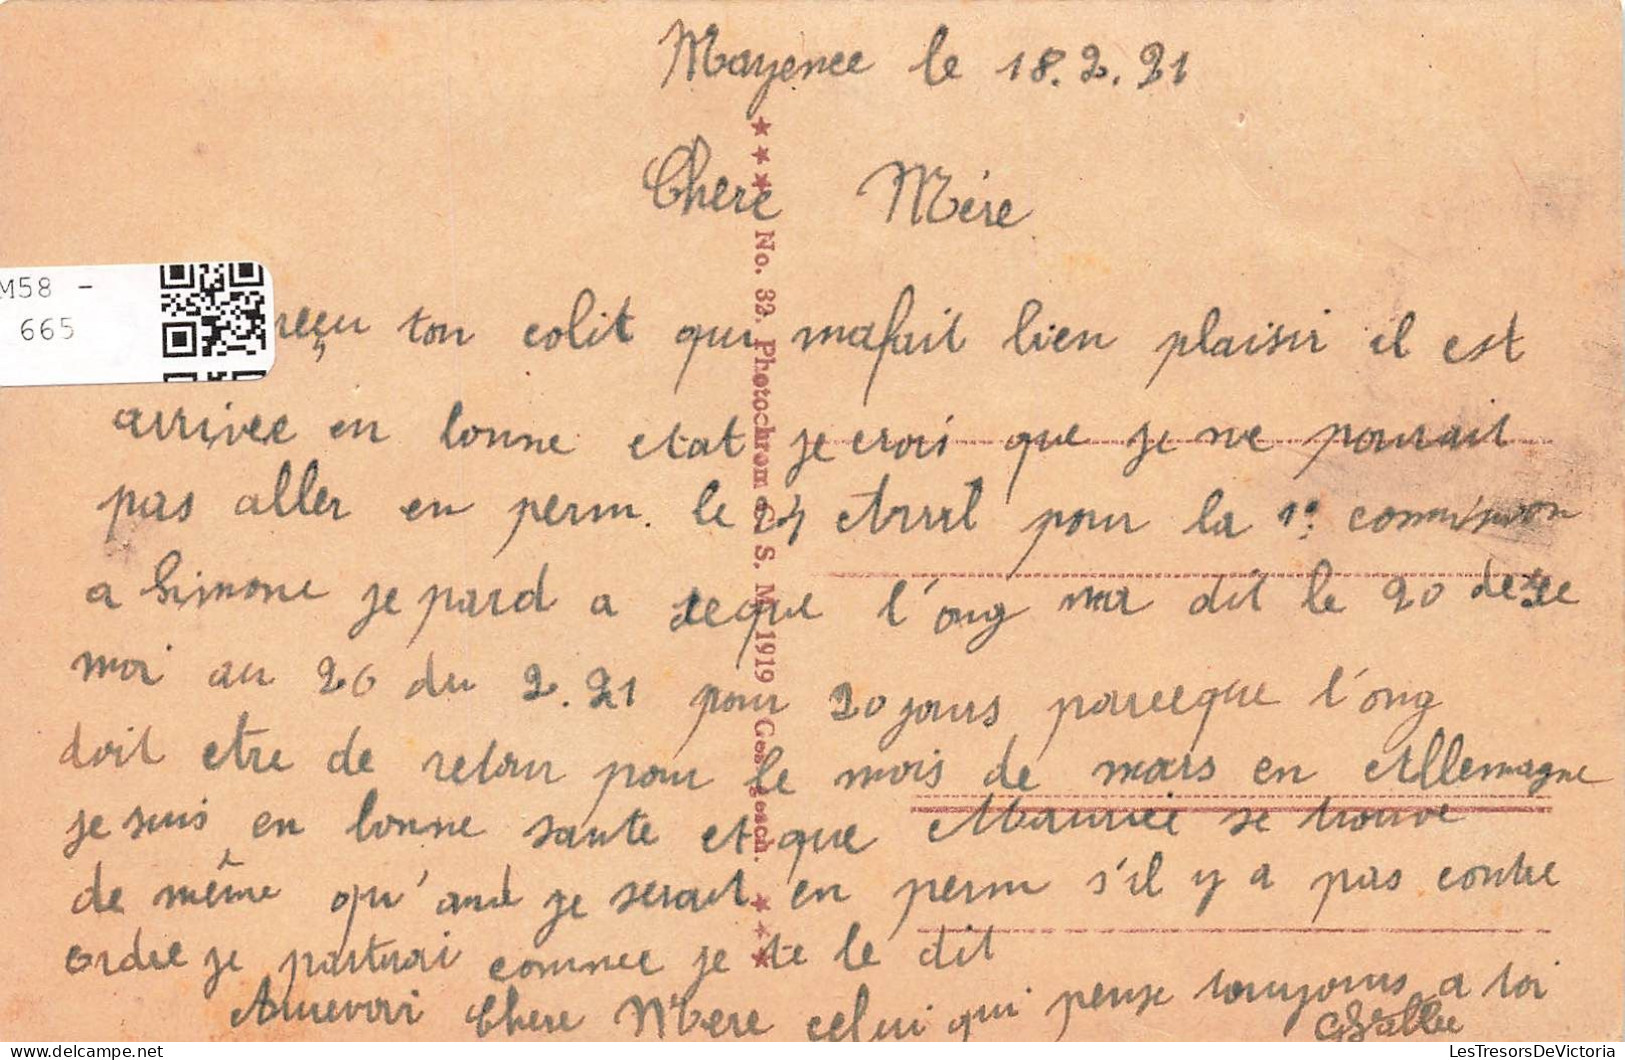 Mayence le 18.2.21
Chere Mère
reçu ton colit qui mafait bien plaisir il est
arrivee en bonne etat je crois que je ne pourait
pas aller en perm. le 24 Avril pour la 1e commission
a Simone je pard a seque l'ong ma dit le 20 dese
moi au 26 du 2.21 pour 20 jours parceeque l'ong
doit etre de retour pour le mois de mars en Allemagne
je suis en bonne sante et que Maurice se trouve
de même qu'and je serait en perm s'il y a pas contre
ordre je partirai comme je te le dit
Aurevoir Chere Mere celui qui pense toujours a toi
★★★ No. 32. Photochrom G. S. M. 1919 Ges. gesch. ★★★
M58 -
665
LesTresorsDeVictoria